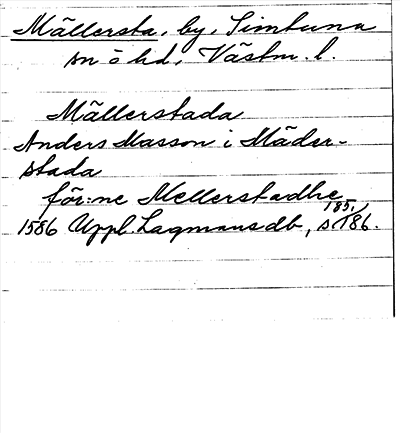 Mällersta, by, Simtuna
sn o hd, Västm. l.
Mällerstada
Anders Masson i Mäder-
stada
för:ne Mellerstadhe
185,
1586 Uppl. Lagmansdb, s. 186.